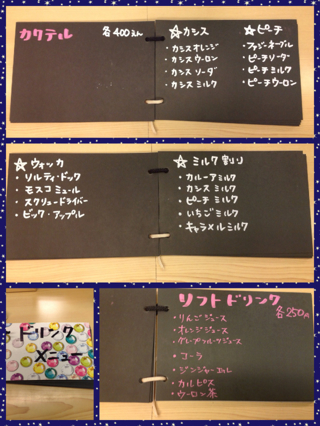 カクテル 各400えん
☆カシス
・カシスオレンジ
・カシスウーロン
・カシスソーダ
・カシスミルク
☆ピーチ
・ファジーネーブル
・ピーチソーダ
・ピーチミルク
・ピーチウーロン
☆ウォッカ
・ソルティ・ドック
・モスコミュール
・スクリュードライバー
・ビック・アップル
☆ミルク割り
・カルーアミルク
・カシスミルク
・ピーチミルク
・いちごミルク
・キャラメルミルク
ドリンク
メニュー
ソフトドリンク
各250円
・りんごジュース
・オレンジジュース
・グレープフルーツジュース
・コーラ
・ジンジャーエール
・カルピス
・ウーロン茶